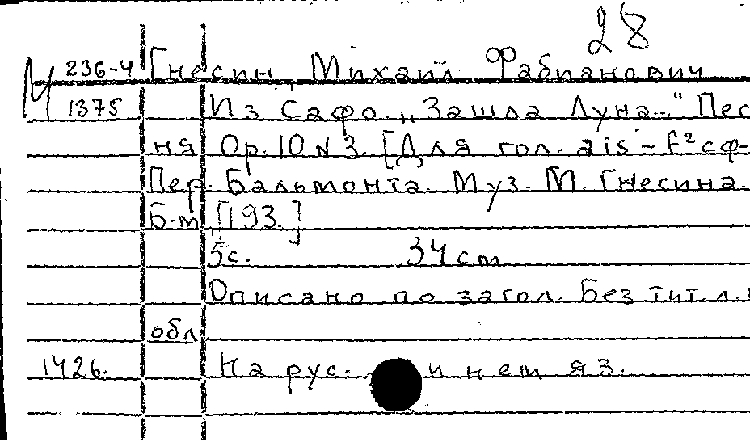 28
М 236-4 Гнесин, Михаил Фабианович
1375 Из Сафо. „Зашла Луна-“ Пес
ня Ор. 10 N 3. [Для гол. ais - f² сф-
Пер. Бальмонта. Муз. М. Гнесина.
Б.m [193.]
5с. 34 cm
Описано по загол. Без тит. л.
обл
1426. На рус. и нем яз.